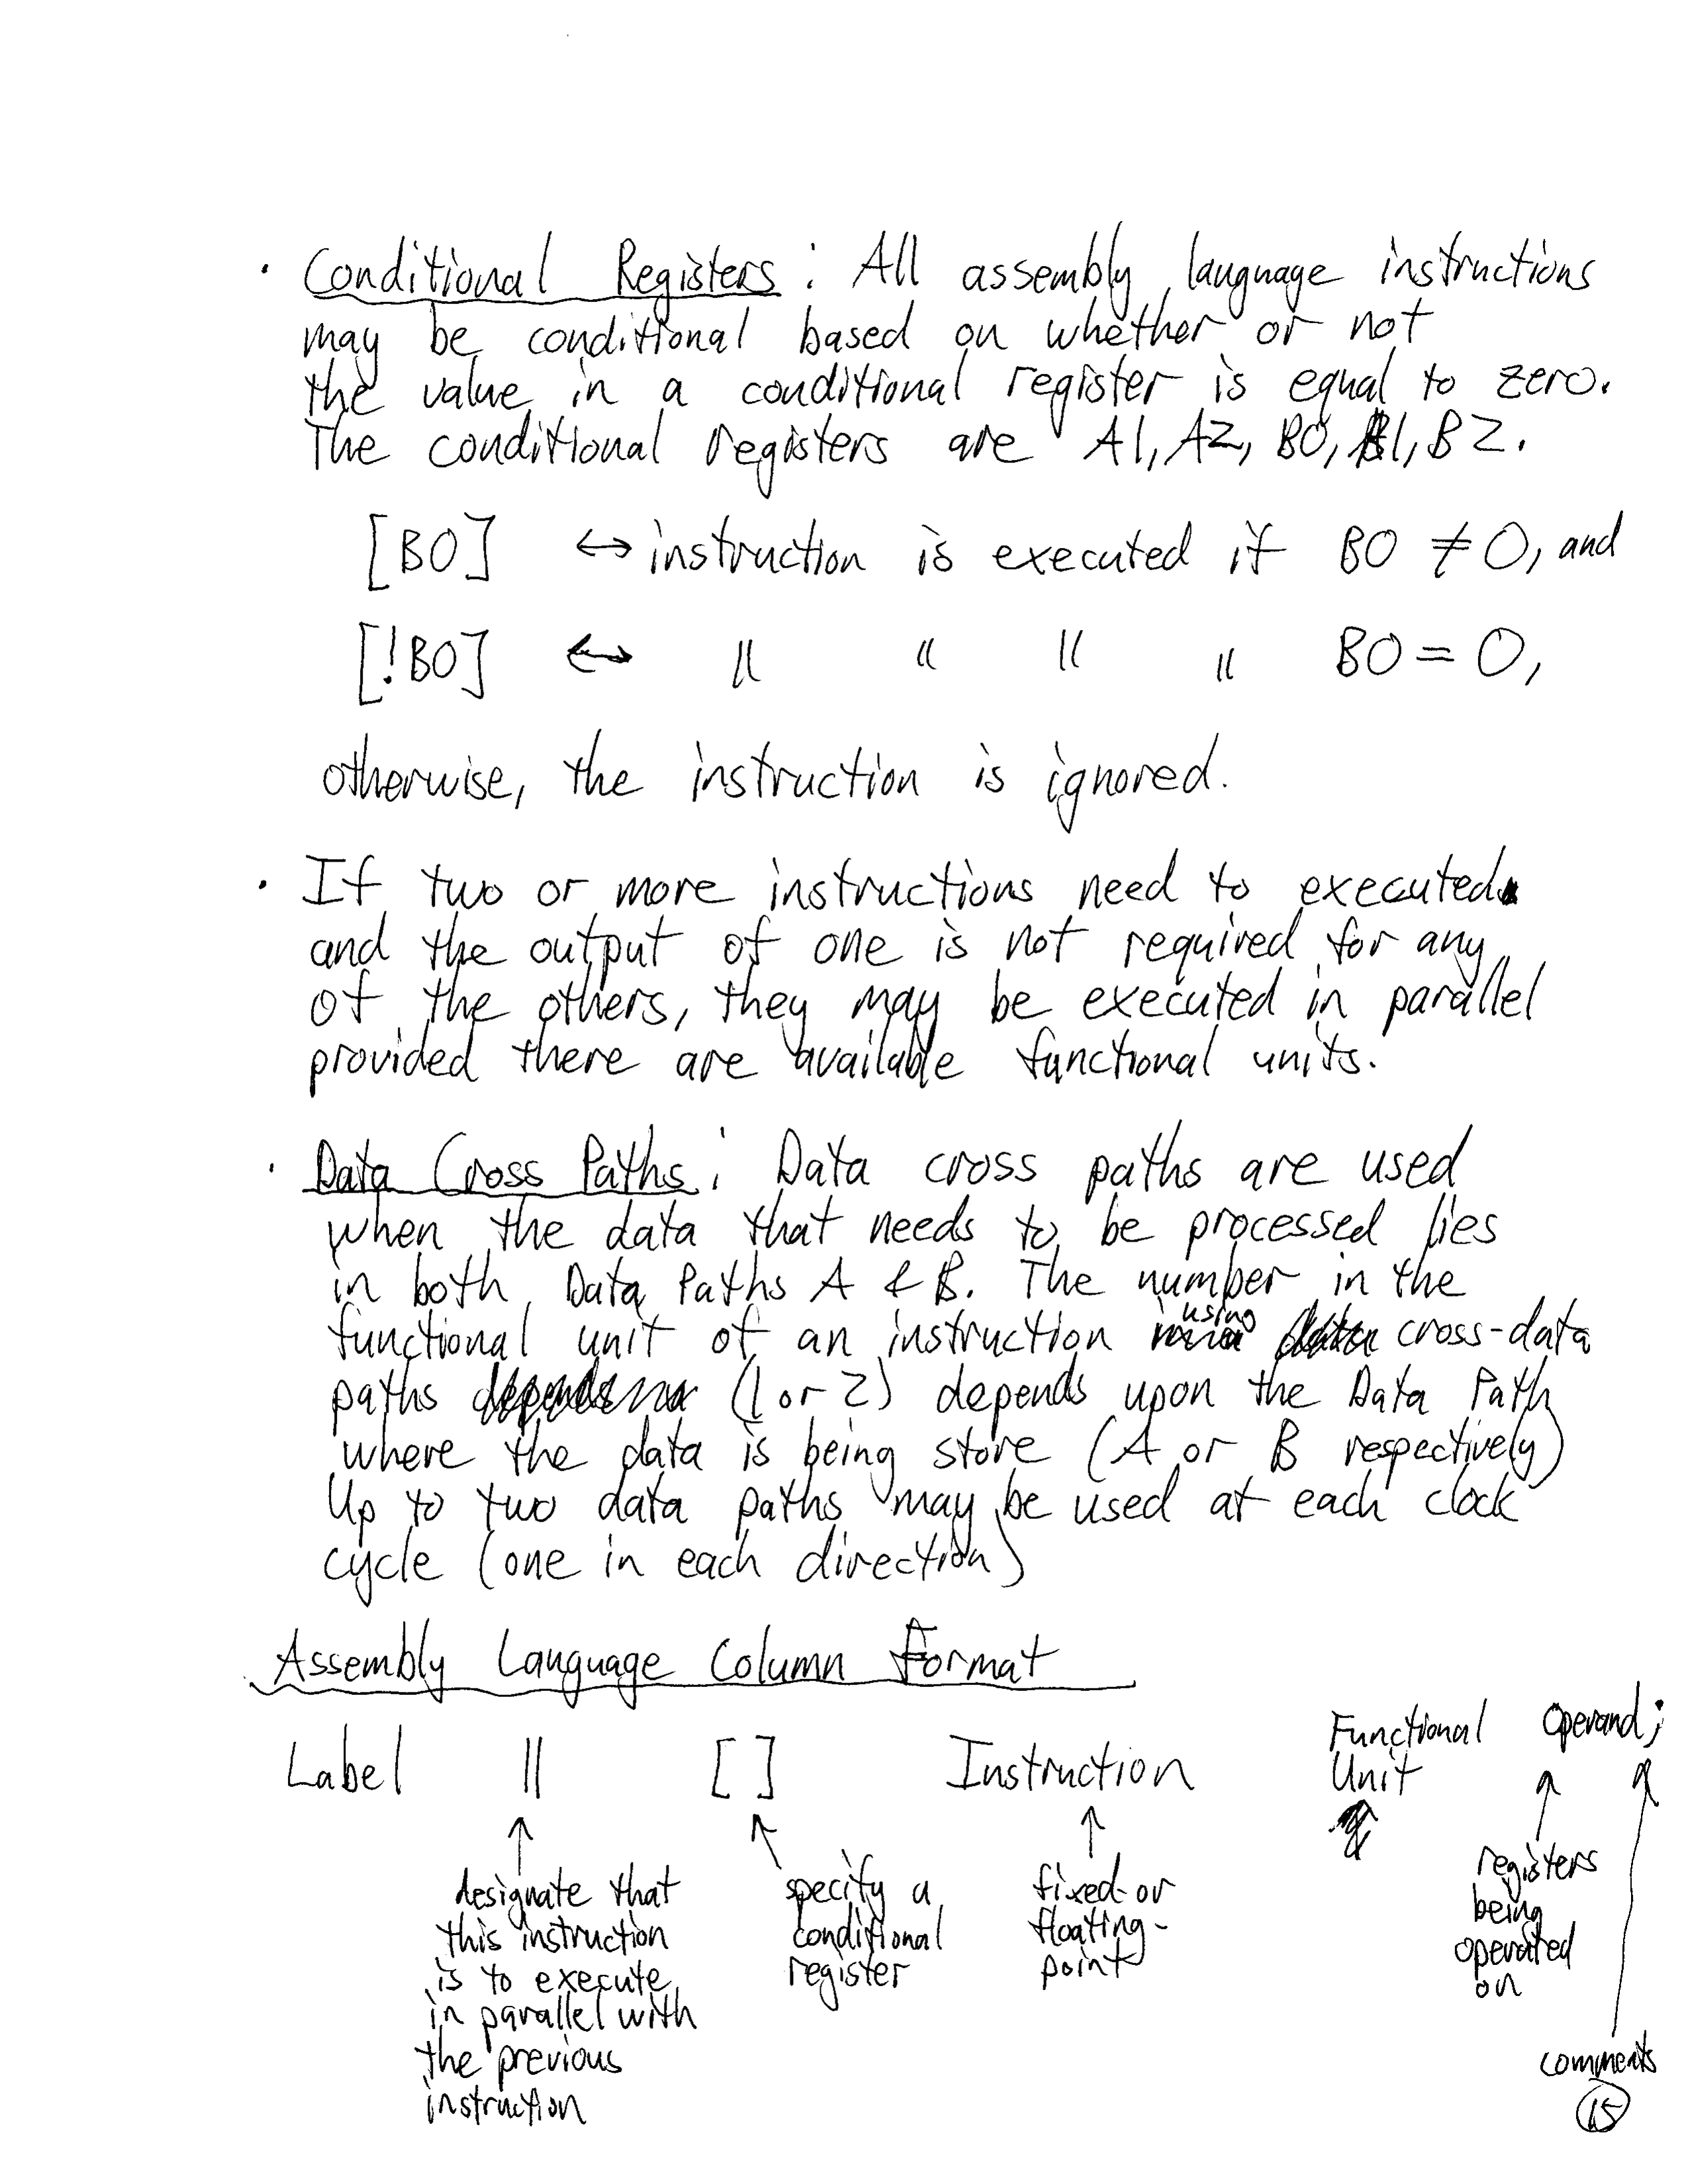 · Conditional Registers: All assembly language instructions
may be conditional based on whether or not
the value in a conditional register is equal to zero.
The conditional registers are A1, A2, B0, B1, B2.
[B0] ↔ instruction is executed if B0 ≠ 0, and
[!B0] ↔ " " " " B0 = 0,
otherwise, the instruction is ignored.
· If two or more instructions need to executed
and the output of one is not required for any
of the others, they may be executed in parallel
provided there are available functional units.
· Data Cross Paths: Data cross paths are used
when the data that needs to be processed lies
in both Data Paths A & B. The number in the
functional unit of an instruction using cross-data
paths (1 or 2) depends upon the Data Path
where the data is being store (A or B respectively)
Up to two data paths may be used at each clock
cycle (one in each direction)
Assembly Language Column Format
Label || [ ] Instruction Functional Unit Operand ;
designate that
this instruction
is to execute
in parallel with
the previous
instruction
specify a
conditional
register
fixed- or
floating-
point
registers
being
operated
on
comments
15